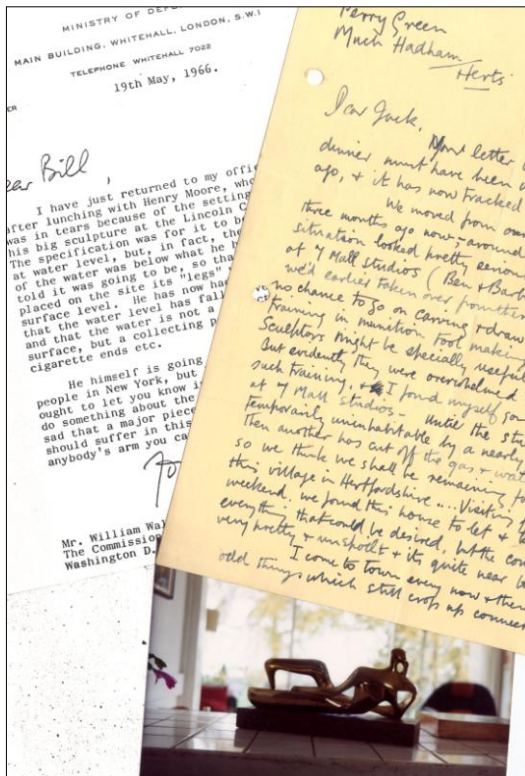 MINISTRY OF DEF
MAIN BUILDING, WHITEHALL, LONDON, S.W.1
TELEPHONE WHITEHALL 7022
19th May, 1966.
ear Bill,
I have just returned to my offi
after lunching with Henry Moore, who
was in tears because of the setting
his big sculpture at the Lincoln C
The specification was for it to be
at water level, but, in fact, the
of the water was below what he h
told it was going to be, so tha
placed on the site its "legs"
surface level. He has now had
that the water level has fall
and that the water is not a
surface, but a collecting p
cigarette ends etc.
He himself is going
people in New York, but
ought to let you know i
do something about the
sad that a major piece
should suffer in this
anybody's arm you ca
Mr. William Wal
The Commissio
Washington D.
Perry Green
Much Hadham
Herts
Dear Jack,
Your letter
dinner must have been
ago, & it has now tracked
We moved from our
three months ago now, – around
situation looked pretty
at 7 Mall Studios (Ben & Barb
we'd earlier taken over from them
no chance to go on carving & draw
training in munition tool making
Sculptors might be specially useful
But evidently they were overwhelmed
such training, & I found myself
at 7 Mall Studios – Until the stu
temporarily uninhabitable by a nearby
Then another has cut off the gas & wat
so we think we shall be remaining fo
this village in Hertfordshire .... Visiting
weekend, we found this house to let & t
everything that could be desired, but the con
very pretty & unspoilt & its quite near
I come to town every now & then
odd things which still crop up connec